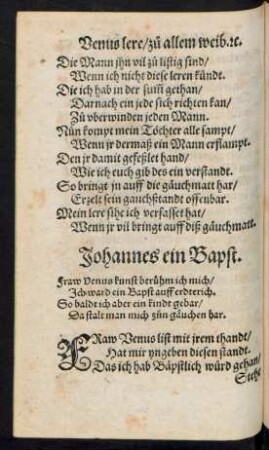 Venus lere/zů allem weib.ꝛc.
Die Mann jhn vil zů listig sind/
Wenn ich nicht diese leren kündt.
Die ich hab in der sum̃ gethan/
Darnach ein jede sich richten kan/
Zů vberwinden jeden Mann.
Nůn kompt mein Töchter alle sampt/
Wenn jr dermaß ein Mann erstampt.
Den jr damit gefeßlet hand/
Wie ich euch gib des ein verstandt.
So bringt jn auff die gäuchmatt har/
Erzelt sein gauchßstandt offenbar.
Mein lere sihe ich verfasset hat/
Wenn jr vil bringt auff diß gäuchmatt.
Johannes ein Bapst.
Fraw Venus kunst berühm ich mich/
Ich ward ein Bapst auff erdterich.
So baldt ich aber ein kindt gebar/
Da stalt man mich zůn gäuchen har.
FRaw Venus list mit jrem thandt/
Hat mir yngeben diesen standt.
Das ich hab Bäpstlich würd gehan/
Steht